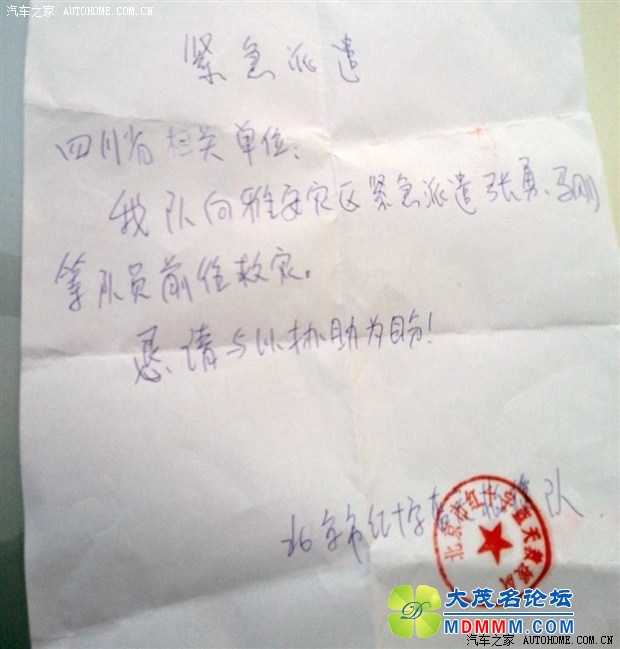 汽车之家 AUTOHOME.COM.CN
紧急派遣
四川省相关单位:
我队向雅安灾区紧急派遣张勇、马刚
等队员前往救灾。
恳请与以协助为盼!
北京市红十字蓝天救援队
北京市红十字蓝天救援队
大茂名论坛
MDMMM.COM
汽车之家 AUTOHOME.COM.CN